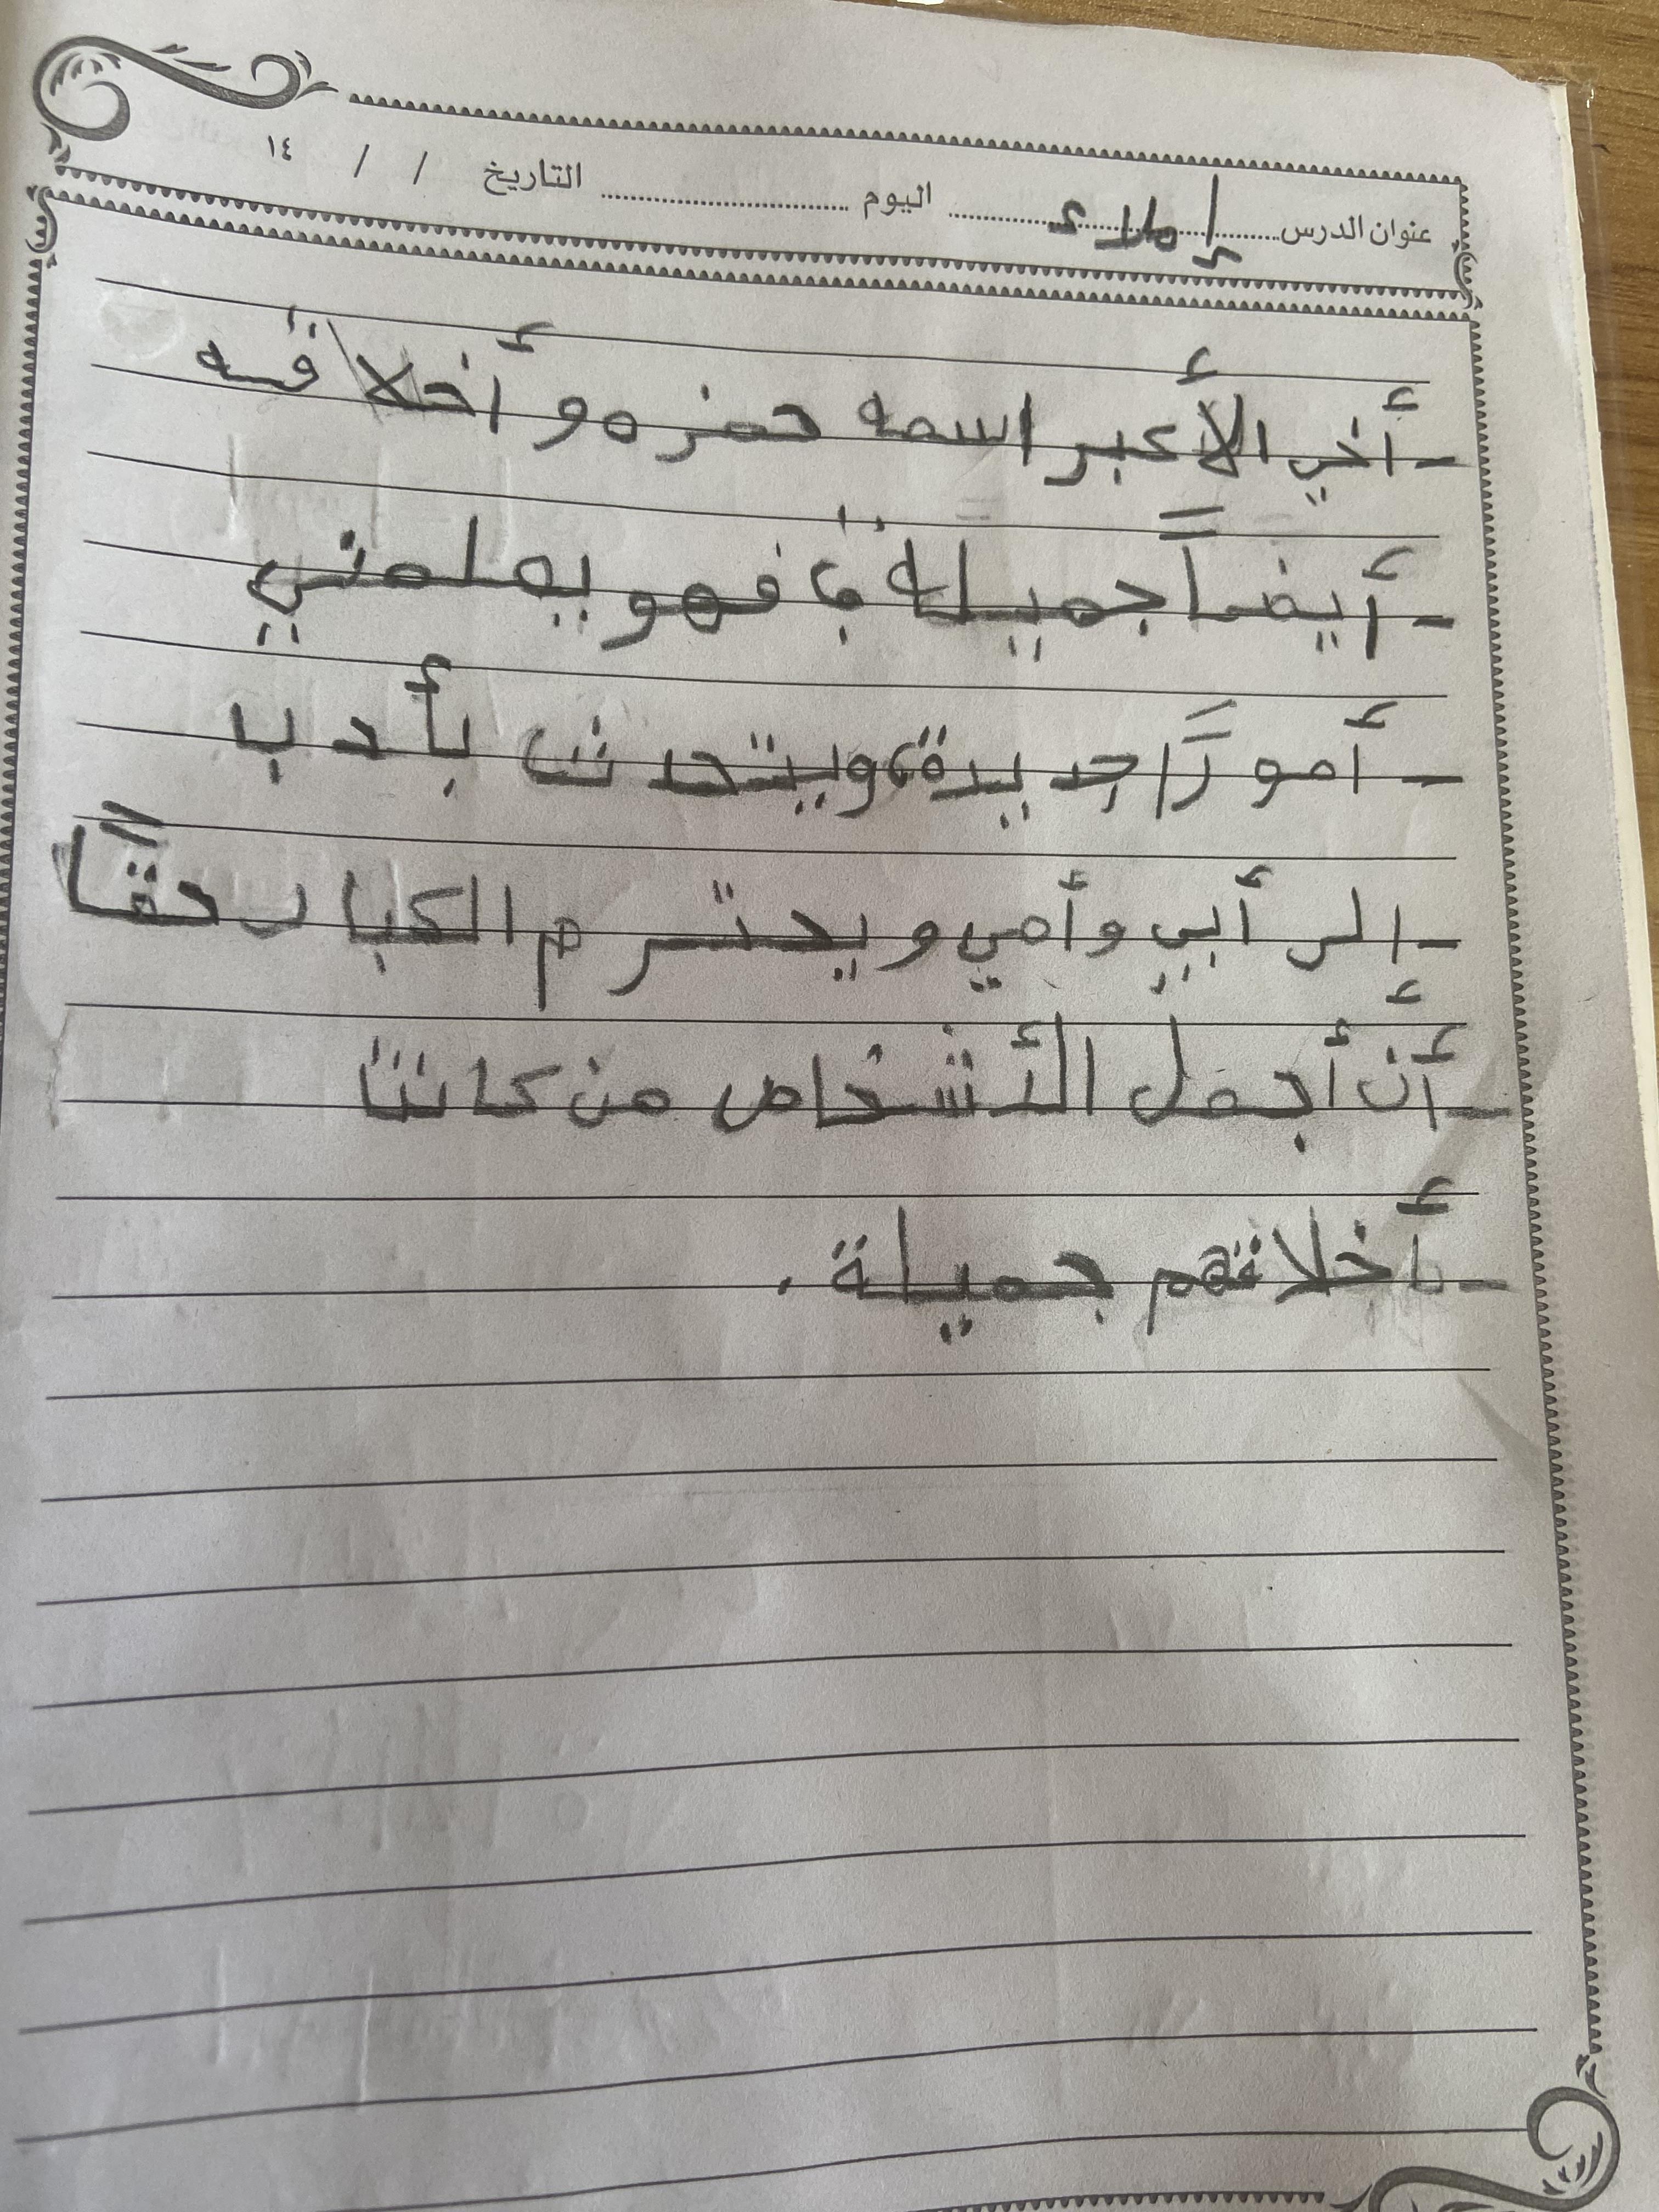 عنوان الدرس إملاء اليوم التاريخ / / ١٤
- أخي الأكبر اسمه حمزه وأخلاقه
- أيضاً جميلة فهو يعلمني
- أمورًا جديدة، ويتحدث بأدب
- الى أبي وأمي ويحترم الكبار حقًا
- أن أجمل الأشخاص من كانتا
- أخلاقهم جميلة .